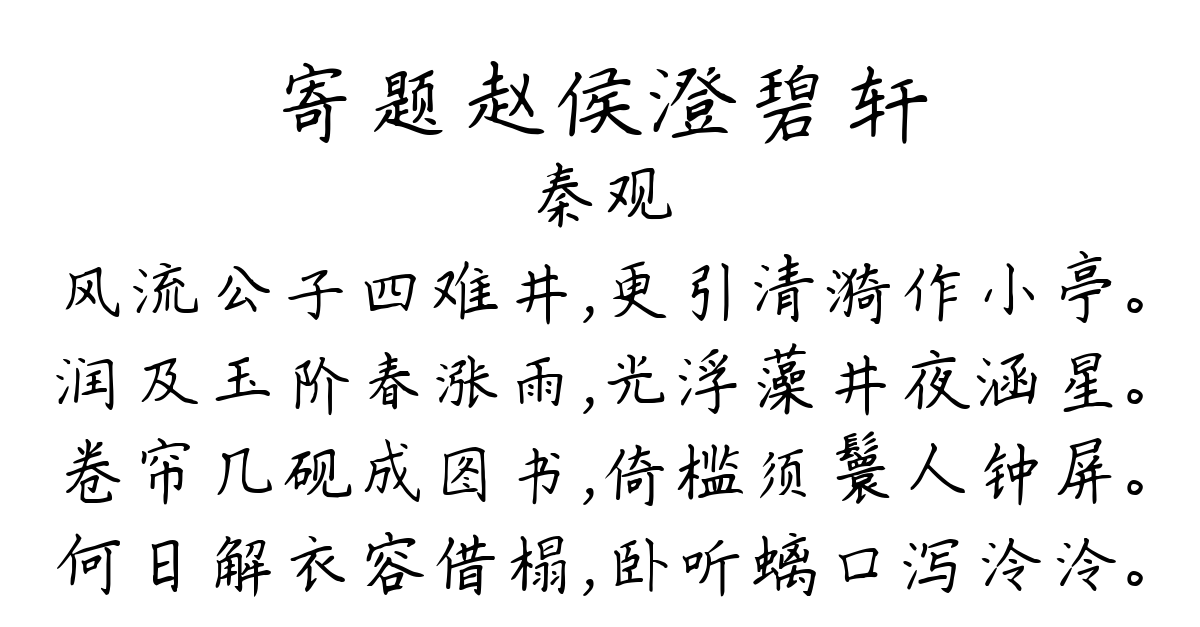 寄题赵侯澄碧轩
秦观
风流公子四难井,更引清漪作小亭。
润及玉阶春涨雨,光浮藻井夜涵星。
卷帘几砚成图书,倚槛须鬟人钟屏。
何日解衣容借榻,卧听螭口泻泠泠。